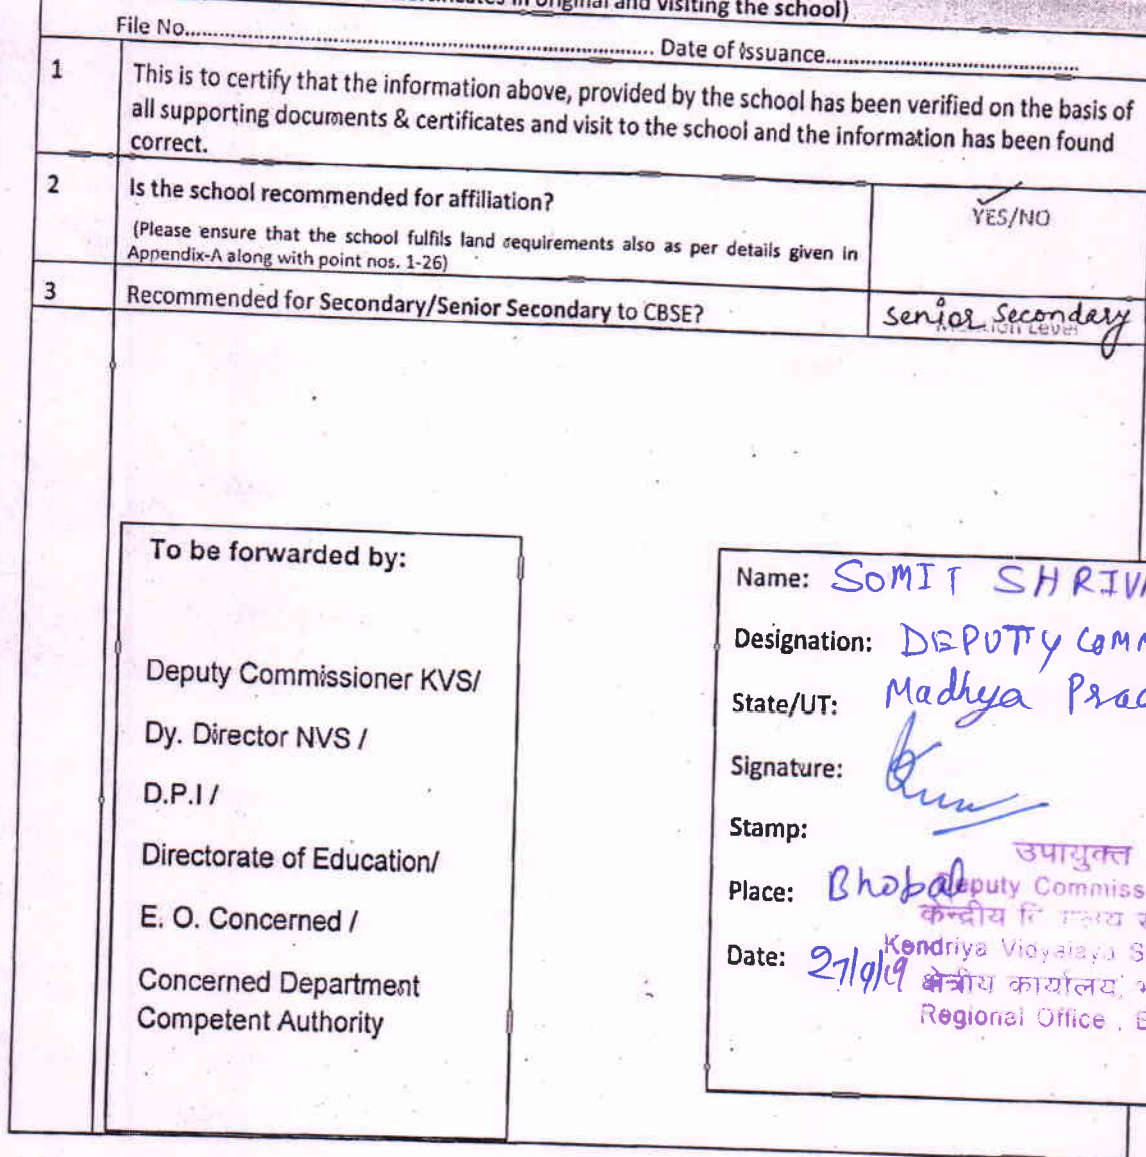 in original and visiting the school)
File No.................................................................................. Date of issuance..................................................
1 This is to certify that the information above, provided by the school has been verified on the basis of
all supporting documents & certificates and visit to the school and the information has been found
correct.
2 Is the school recommended for affiliation? YES/NO
(Please ensure that the school fulfils land requirements also as per details given in
Appendix-A along with point nos. 1-26)
3 Recommended for Secondary/Senior Secondary to CBSE? Senior Secondary
To be forwarded by:
Deputy Commissioner KVS/
Dy. Director NVS /
D.P.I /
Directorate of Education/
E. O. Concerned /
Concerned Department
Competent Authority
Name: SOMIT SHRIVA
Designation: DEPUTY COMM
State/UT: Madhya Prad
Signature:
Stamp:
उपायुक्त
Place: Bhopal
Deputy Commiss
केन्द्रीय
Date: 27/9/19
Kendriya Vidyalaya S
क्षेत्रीय कार्यालय, भ
Regional Office, B